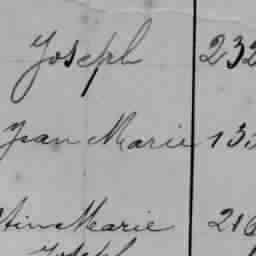 Joseph 232
Jean Marie 133
Marie 216
Joseph